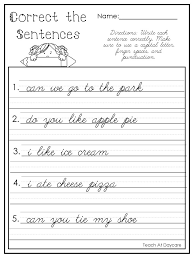 Correct the
Sentences
Name:
Directions: Write each
sentence correctly. Make
sure to use a capital letter,
finger spaces and
punctuation.
1. can we go to the park
2. do you like apple pie
3. i like ice cream
4. i ate cheese pizza
5. can you tie my shoe
Teach At Daycare